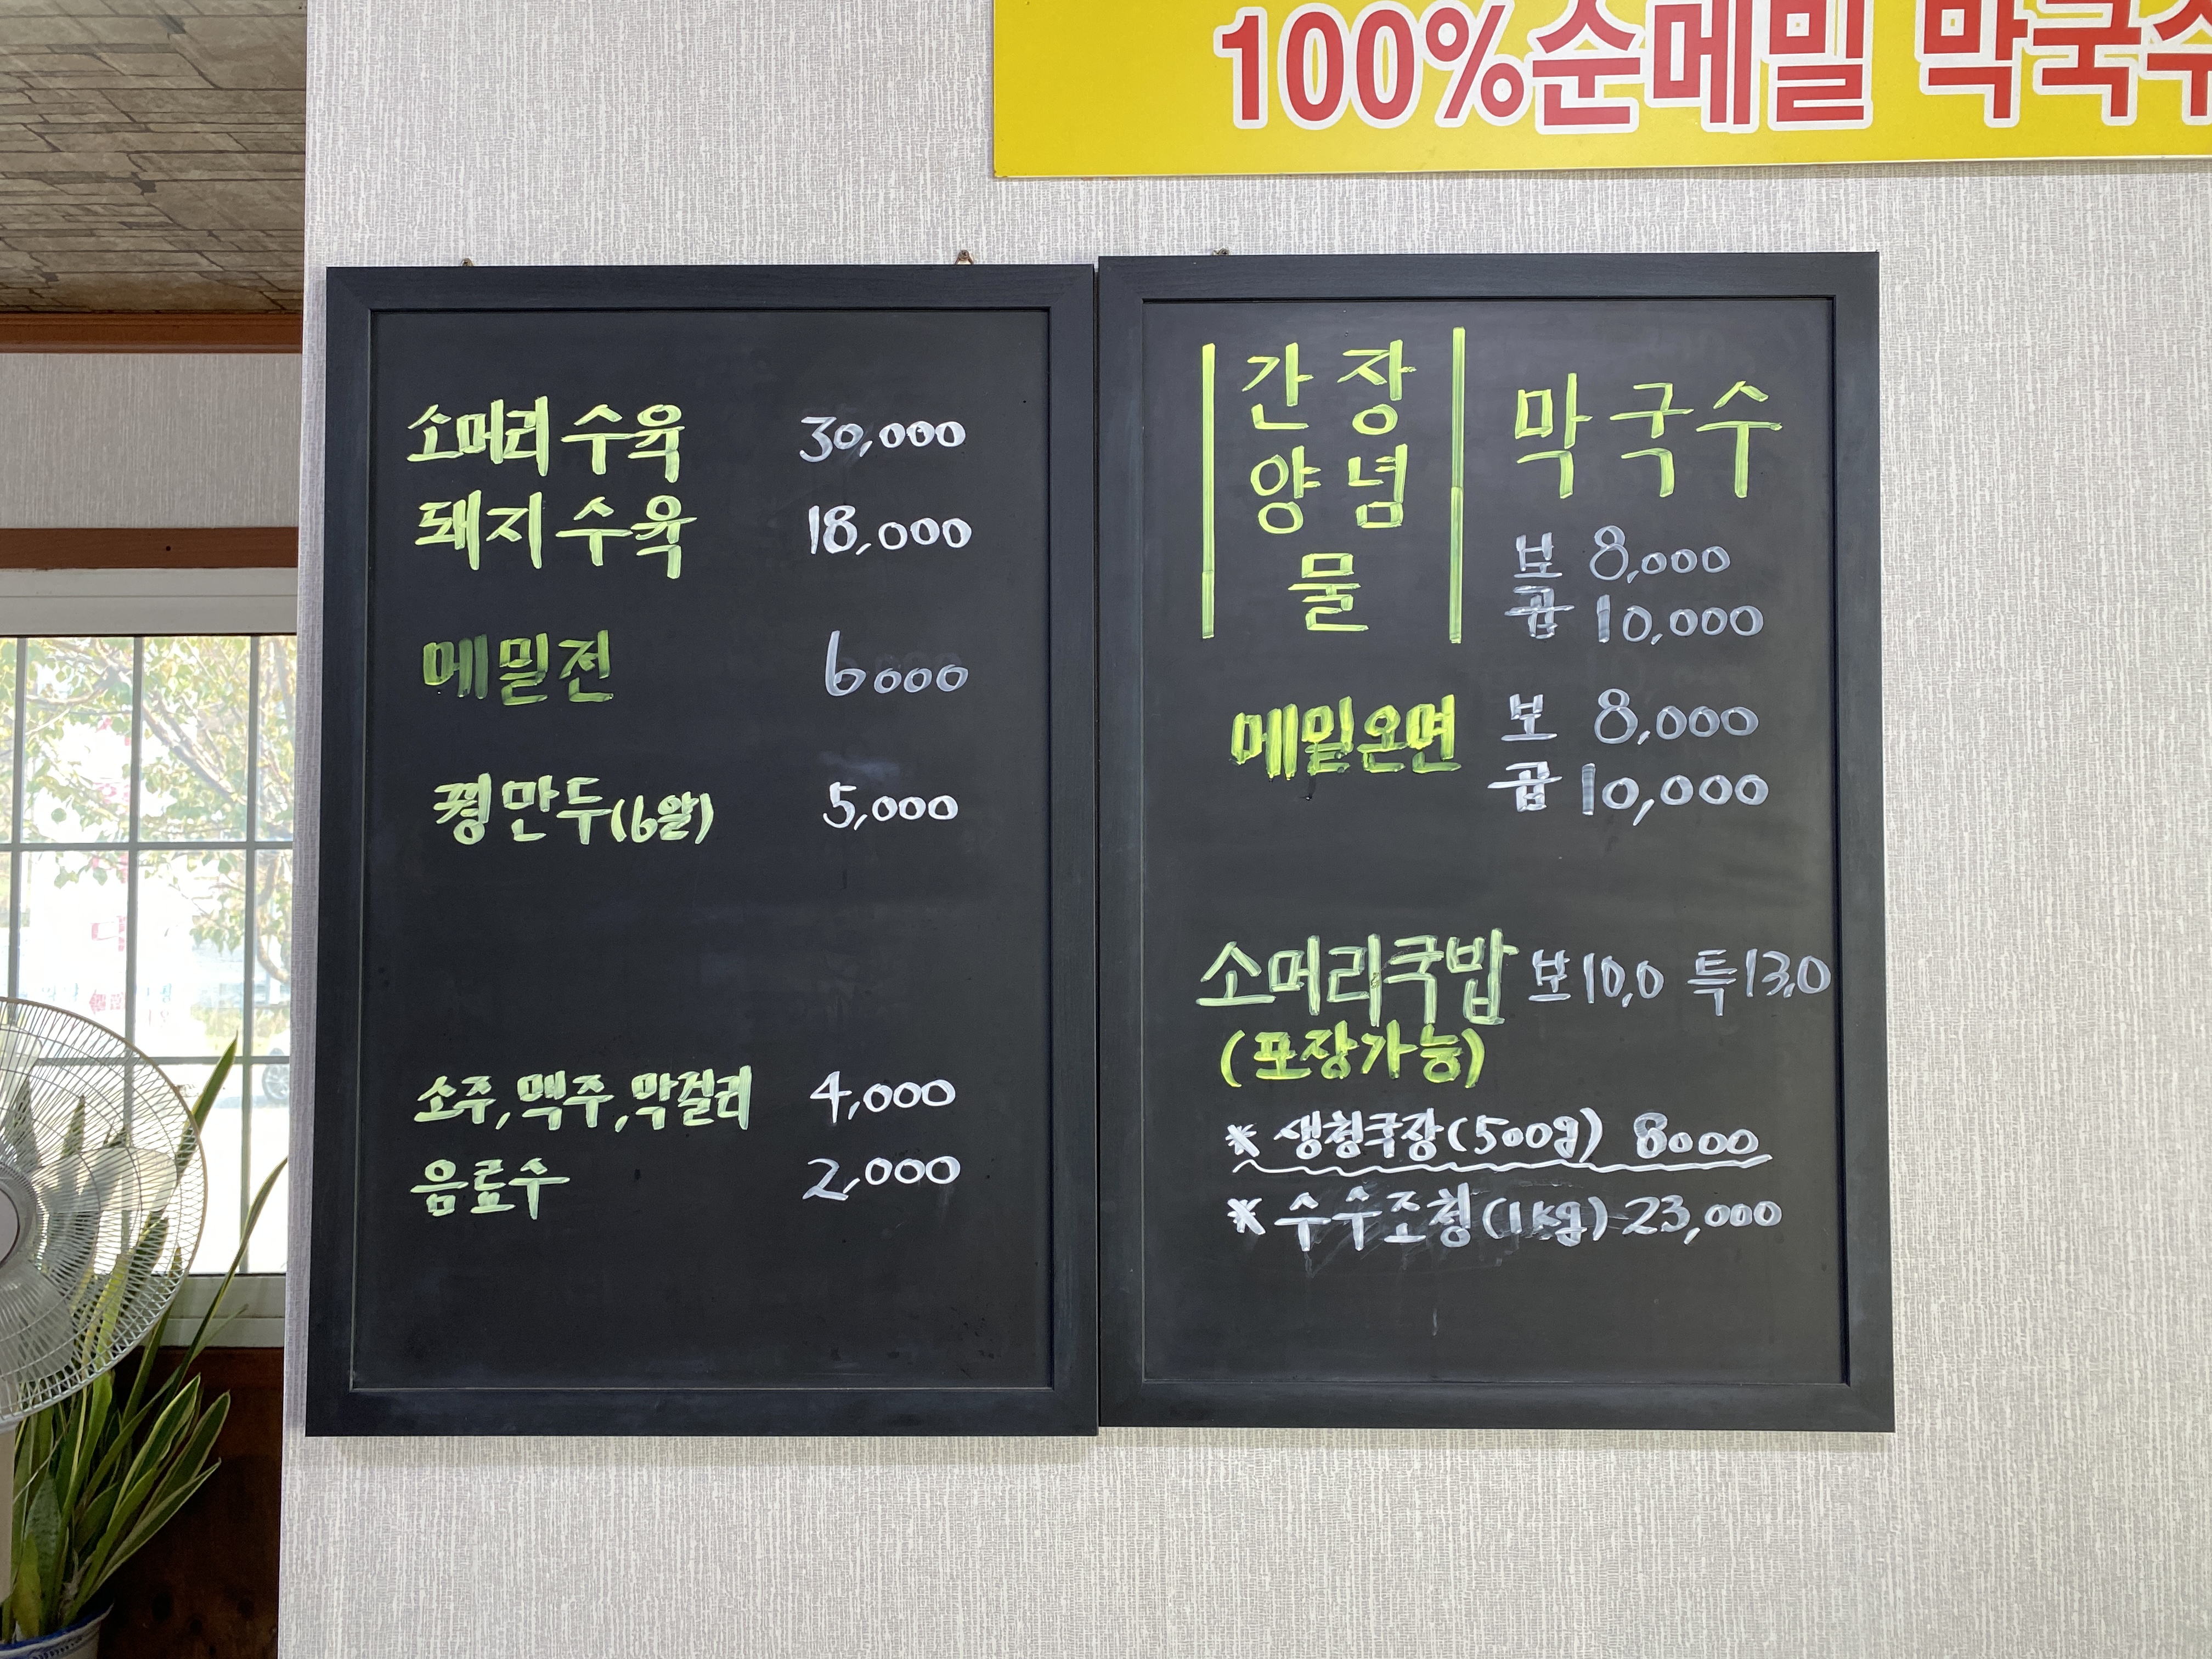 100%순메밀 막국수
소머리수육 30,000
돼지수육 18,000
메밀전 6000
꿩만두(6알) 5,000
소주,맥주,막걸리 4,000
음료수 2,000
간장
양념
물
막국수
보 8,000
곱 10,000
메밀온면 보 8,000
곱 10,000
소머리국밥 보10,0 특13,0
(포장가능)
* 생청국장(500g) 8000
* 수수조청(1kg) 23,000